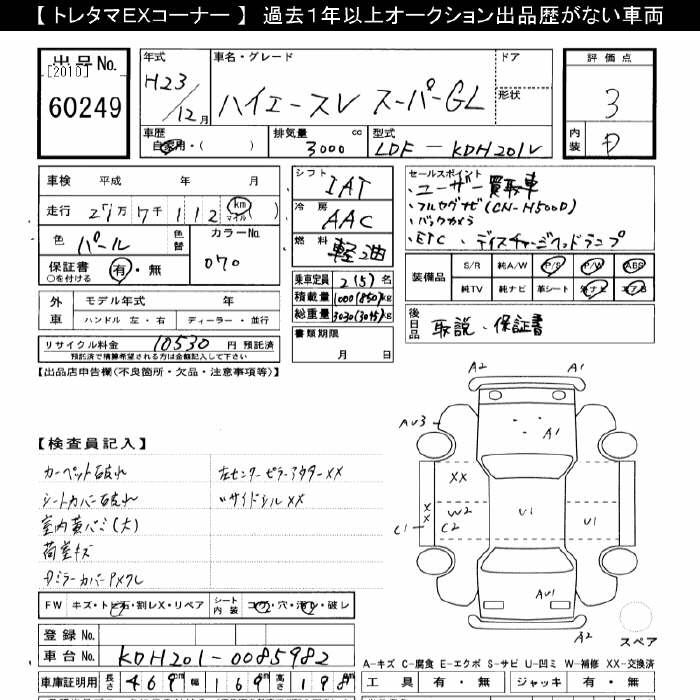 【 トレタマEXコーナー 】 過去1年以上オークション出品歴がない車両
出品No.
[2010]
60249
年式
H23/12月
車名・グレード
ハイエースV スーパーGL
ドア
形状
車歴
自家用・( )
排気量 cc
3000
型式
LDF-KDH201V
評価点
3
内装
D
車検 平成 年 月
走行 21万7千112 km マイル ( )
色
パール
色替
カラーNo.
070
保証書
○を付ける
有・無
外車
モデル年式 年
ハンドル 左・右 ディーラー・並行
リサイクル料金 10530 円 預託済
預託済で精算希望される方は金額記入して下さい
シフト
IAT
冷房
AAC
燃料
軽油
乗車定員 2(5)名
積載量 1000(850)kg
総重量 3030(3045)kg
書類期限
月 日
セールスポイント
・ユーザー買取車
・フルセグナビ(CN-H500D)
・バックカメラ
・ETC、ディスチャージヘッドランプ
装備品
S/R 純A/W P/S P/W ABS
純TV 純ナビ 革シート 社ナビ エアB
後日品
取説、保証書
【出品店申告欄(不良箇所・欠品・注意事項等)】
【検査員記入】
カーペット破れ
シートカバー破れ
室内黄バミ(大)
荷室キズ
Dミラーカバー Pメクレ
左センターピラーアウターXX
〃サイドシルXX
FW キズ・トビ石・割レX・リペア
シート内装 コゲ・穴・汚レ・破レ
登録No.
車台No. KDH201-0085982
車庫証明用 長さ 469cm 幅 169cm 高さ 198cm
A2
A1
AU3
A1
XX
X
X
C1
W2
C2
U1
U1
AU1
A2
スペア
A-キズ C-腐食 E-エクボ S-サビ U-凹ミ W-補修 XX-交換済
工具 有・無 ジャッキ 有・無